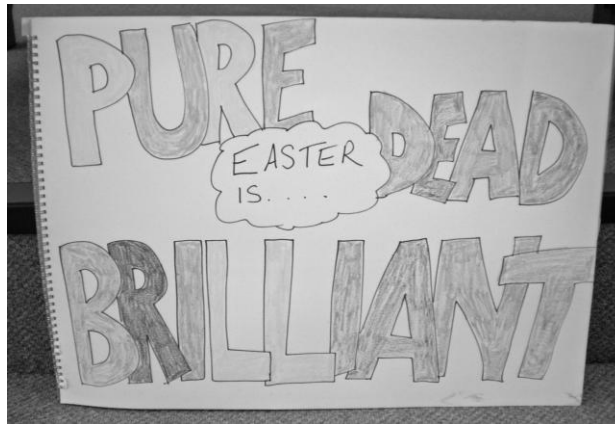 PURE
EASTER
IS.....
DEAD
BRILLIANT